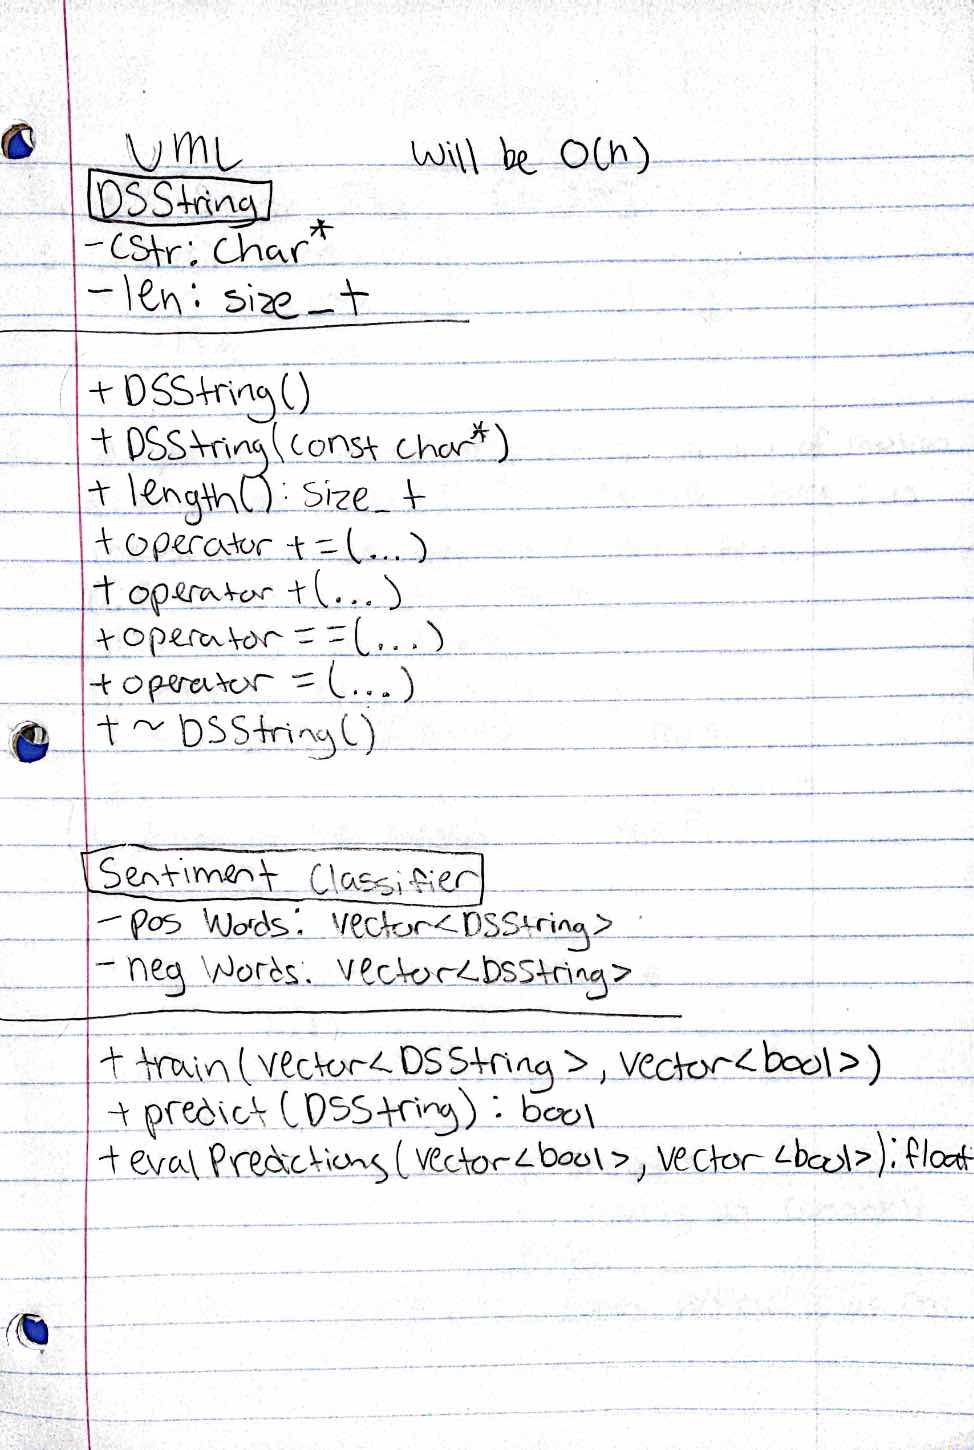 UML Will be O(n)
DSString
- Cstr: Char*
- len: size_t
+ DSString()
+ DSString(const char*)
+ length(): size_t
+ operator +=(...)
+ operator +(...)
+ operator ==(...)
+ operator =(...)
+ ~ DSString()
Sentiment Classifier
- pos Words: vector<DSString>
- neg Words: vector<DSString>
+ train(vector<DSString>, vector<bool>)
+ predict(DSString): bool
+ eval Predictions(vector<bool>, vector<bool>): float